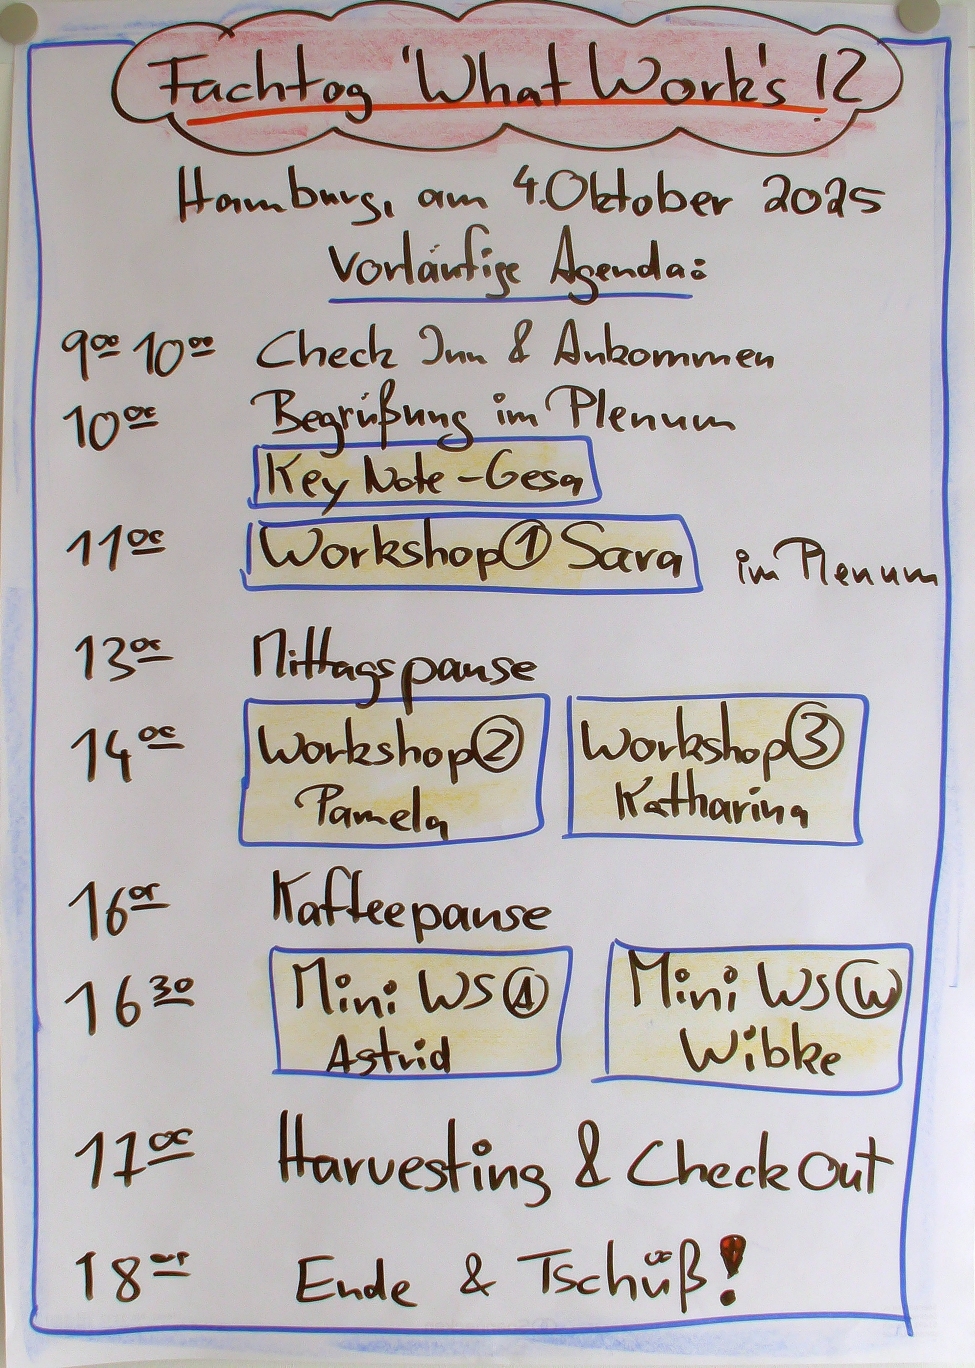 Fachtag 'What Work's !?
Hamburg, am 4.Oktober 2025
Vorläufige Agenda:
9⁰⁰ 10⁰⁰ Check Inn & Ankommen
10⁰⁰ Begrüßung im Plenum
Key Note - Gesa
11⁰⁰ Workshop ① Sara im Plenum
13⁰⁰ Mittagspause
14⁰⁰ Workshop ② Workshop ③
Pamela Katharina
16⁰⁰ Kaffeepause
16³⁰ Mini WS Ⓐ Mini WS Ⓦ
Astrid Wibke
17⁰⁰ Harvesting & Check Out
18⁰⁰ Ende & Tschüß!